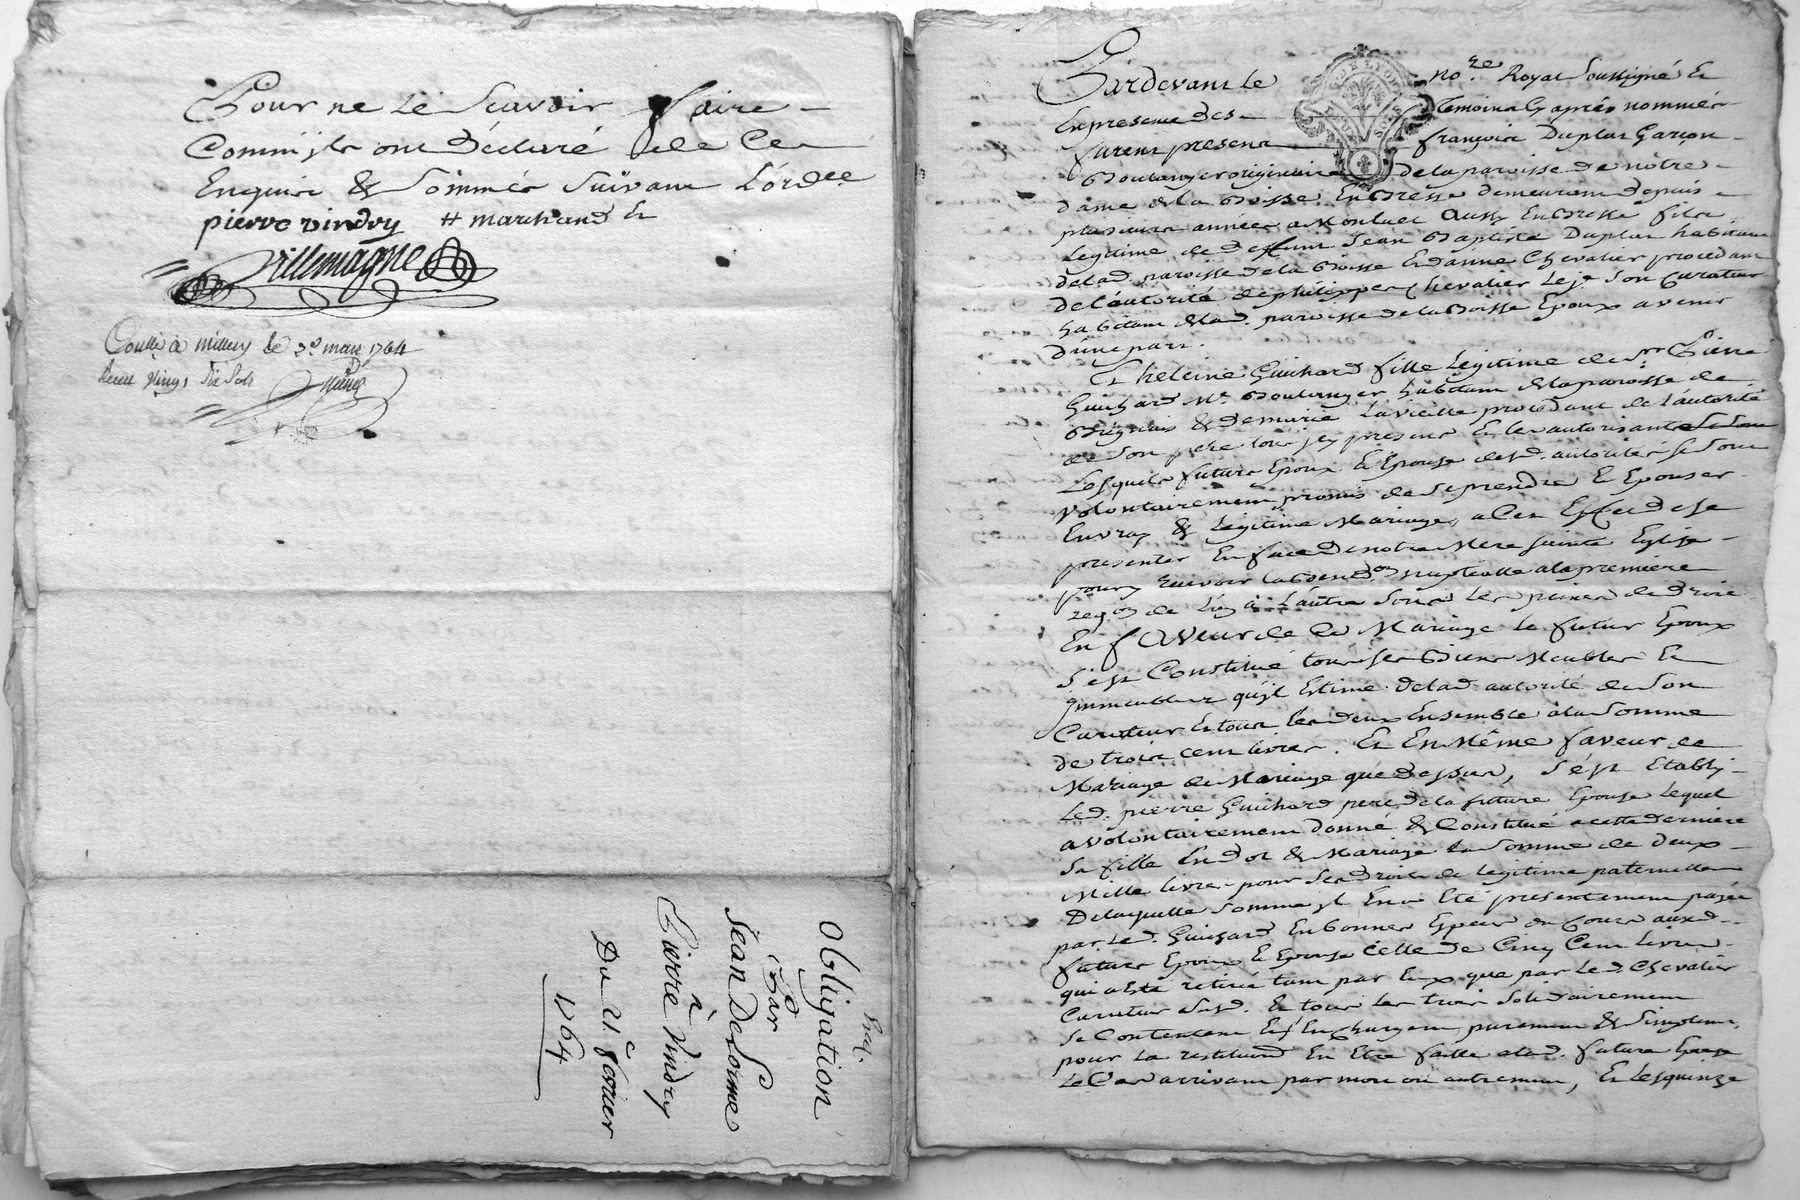 Pour ne le Scavoir faire
Comme ils ont déclaré de Ce
Enquis & Sommés Suivant L'ord.ce
pierre vindry # marchand et
Villemagne
Conllé à millery le 3e mars 1764
Receu vingt Six Sols
Obligation
Par
Jean Delorme
à
Pierre Vindry
Du 21e fevrier
1764
Enreg.
Pardevant le no.re Royal Soussigné Et
En presence des Temoins Cy après nommés
furent presents françois Duplat Garçon
Boulanger originaire de la paroisse de nôtre
dame de la Boisse En Bresse demeurant depuis
plusieurs années a Montluel Aussy En Bresse fils
Legitime de deffunt Jean Baptiste Duplat habitant
de lad. paroisse de la Boisse Et d'anne Chevalier procedant
de l'autorité de philippe Chevalier Le j.e Son Curateur
habitant de lad. paroisse de la Boisse Epoux a venir
d'une part.
Et heleine Guichard fille Legitime de S.r Pierre
Guichard M.e Boulanger habitant de la paroisse de
Brignais & de marie Lavielle procedant de l'autorité
de Son père tous jcy presens Et les autorisant
Lesquels futurs Epoux Et Epouse desd. autorités Se Sont
volontairement promis de Se prendre Et Epouser
En vray & Legitime Mariage, a Cet Effet de se
presenter En face de notre Mere Sainte Eglise
pour y recevoir la Bened.on nuptialle a la premiere
req.on de L'un à L'autre Sous les peines de droit
En fAVeur de Ce Mariage le futur Epoux
S'est Constitué tous ses Biens Meubles Et
jmmeubles qu'jl Estime de lad. autorité de Son
Curateur Et tous les deux Ensemble à la Somme
de trois cent livres. Et En Même faveur de
Mariage de Mariage que dessus, S'est Etably
Led. pierre Guichard pere de la future Epouse Lequel
a volontairement donné & Constitué a cette derniere
Sa fille En dot & Mariage la Somme de deux
Mille livres pour Ses droits de legitime paternelle
De laquelle Somme jl En a Eté presentement payée
par Led. Guichard En bonnes Especes du Cours auxd.
futurs Epoux Et Epouse Celle de Cinq Cent Livres
qui a Eté retirée tant par Eux que par Led. Chevalier
Curateur Susd. Et tous les trois Solidairement
Se Contentent Et S'En chargent purement & Simplem.t
pour La restitution En Etre faitte a lad. future Epouse
Le Cas arrivant par mort ou autrement, Et Les quinze